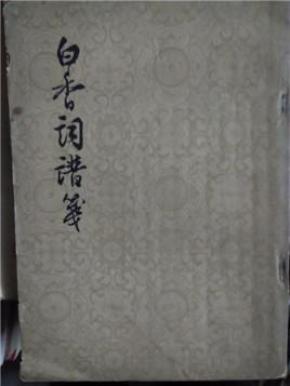 白香词谱笺